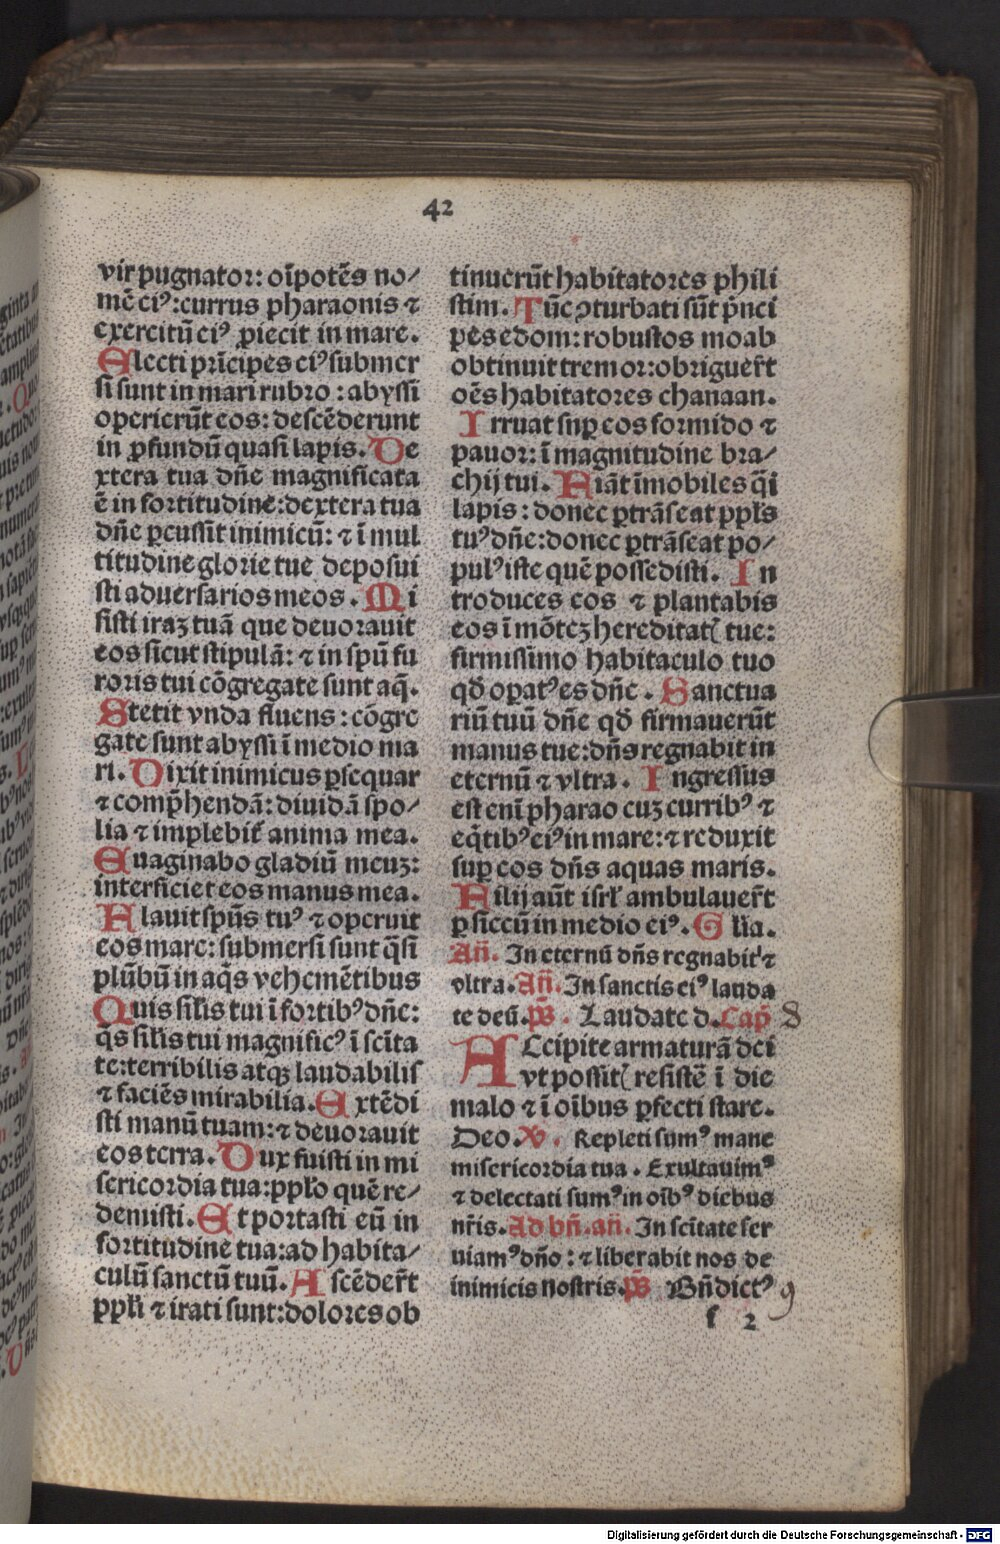 42
vir pugnator: oīpotēs no⸗
mē ei⁹: currus pharaonis ⁊
exercitū ei⁹ ꝓiecit in mare.
Electi prīcipes ei⁹ submer
si sunt in mari rubro: abyssi
operierūt eos: descēderunt
in ꝓfundū quasi lapis. De
xtera tua dñe magnificata
ē in fortitudine: dextera tua
dñe ꝑcussit inimicū: ⁊ ī mul
titudine glorie tue deposui
sti aduersarios meos. Mi
sisti iraꝫ tuā que deuorauit
eos sicut stipulā: ⁊ in spū fu
roris tui cōgregate sunt aq̄.
Stetit vnda fluens: cōgre
gate sunt abyssi ī medio ma
ri. Dixit inimicus ꝑsequar
⁊ comp̄hendā: diuidā spo⸗
lia ⁊ implebit̃ anima mea.
Euaginabo gladiū meuꝫ:
interficiet eos manus mea.
Flauit spūs tu⁹ ⁊ operuit
eos mare: submersi sunt q̄si
plūbū in aq̄s vehemētibus
Quis silis tui ī fortib⁹ dñe:
q̄s silis tui magnific⁹ ī scīta
te: terribilis atqꝫ laudabilis
⁊ faciēs mirabilia. Extēdi
sti manū tuam: ⁊ deuorauit
eos terra. Dux fuisti in mi
sericordia tua: ppło quē re⸗
demisti. Et portasti eū in
fortitudine tua: ad habita⸗
culū sanctū tuū. Ascēder̄t
ppłi ⁊ irati sunt: dolores ob
tinuerūt habitatores phili
stim. Tūc ꝯturbati sūt p̄nci
pes edom: robustos moab
obtinuit tremor: obriguer̄t
oēs habitatores chanaan.
Irruat suꝑ eos formido ⁊
pauor: ī magnitudine bra⸗
chij tui. Fiāt īmobiles q̄i
lapis: donec ꝑtrāseat ppłs
tu⁹ dñe: donec ꝑtrāseat po⸗
pul⁹ iste quē possedisti. In
troduces eos ⁊ plantabis
eos ī mōteꝫ hereditatꝭ tue:
firmissimo habitaculo tuo
qđ oꝑat⁹ es dñe. Sanctua
riū tuū dñe qđ firmauerūt
manus tue: dñs regnabit in
eternū ⁊ vltra. Ingressus
est enī pharao cuꝫ currib⁹ ⁊
eq̄tib⁹ ei⁹ in mare: ⁊ reduxit
suꝑ eos dñs aquas maris.
Filij aūt isrł ambulauer̄t
ꝑ siccū in medio ei⁹. Głia.
Añ. In eternū dñs regnabit ⁊
vltra. Añ. In sanctis ei⁹ lauda
te deū. p̄s. Laudate d. Cap̄ 8
Accipite armaturā dei
vt possitꝭ resistē ī die
malo ⁊ ī oībus ꝑfecti stare.
Deo. V. Repleti sum⁹ mane
misericordia tua. Exultauim⁹
⁊ delectati sum⁹ in oīb⁹ diebus
nr̄is. Ad bñ. añ. In scītate ser
uiam⁹ dño: ⁊ liberabit nos de
inimicis nostris. p̄s Bñdict⁹ 9
f 2
Digitalisierung gefördert durch die Deutsche Forschungsgemeinschaft - DFG